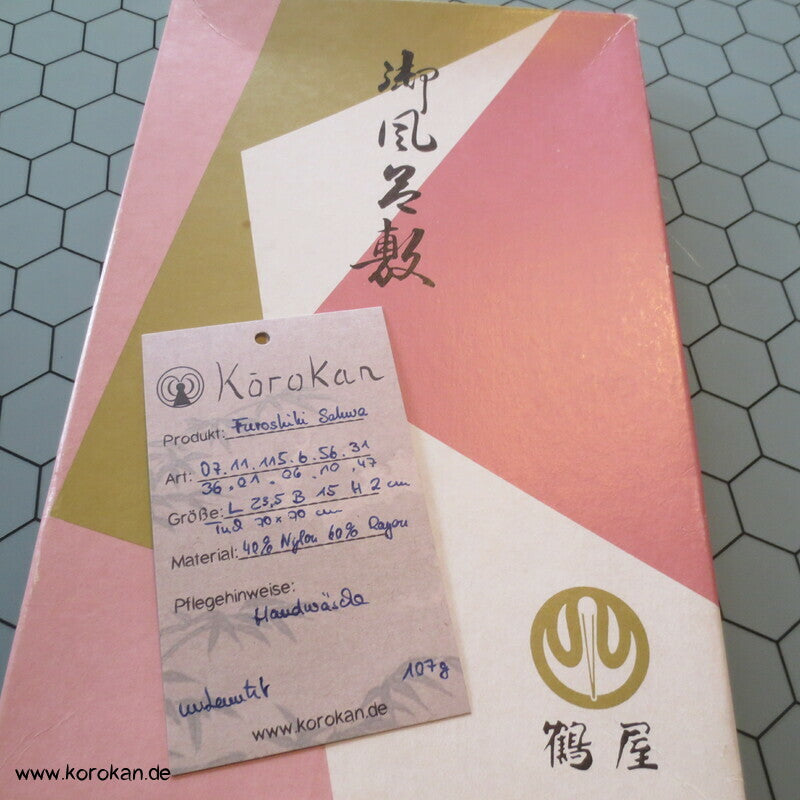 御風呂敷
Kōrokan
Produkt: Furoshiki Sakura
Art: 07.11.115.6.56.31
36.01.06.10.47
Größe: L 23,5 B 15 H 2 cm
Tuch 70 x 70 cm
Material: 40% Nylon 60% Rayon
Pflegehinweise:
Handwäsche
unbenutzt
107g
www.korokan.de
鶴屋
www.korokan.de